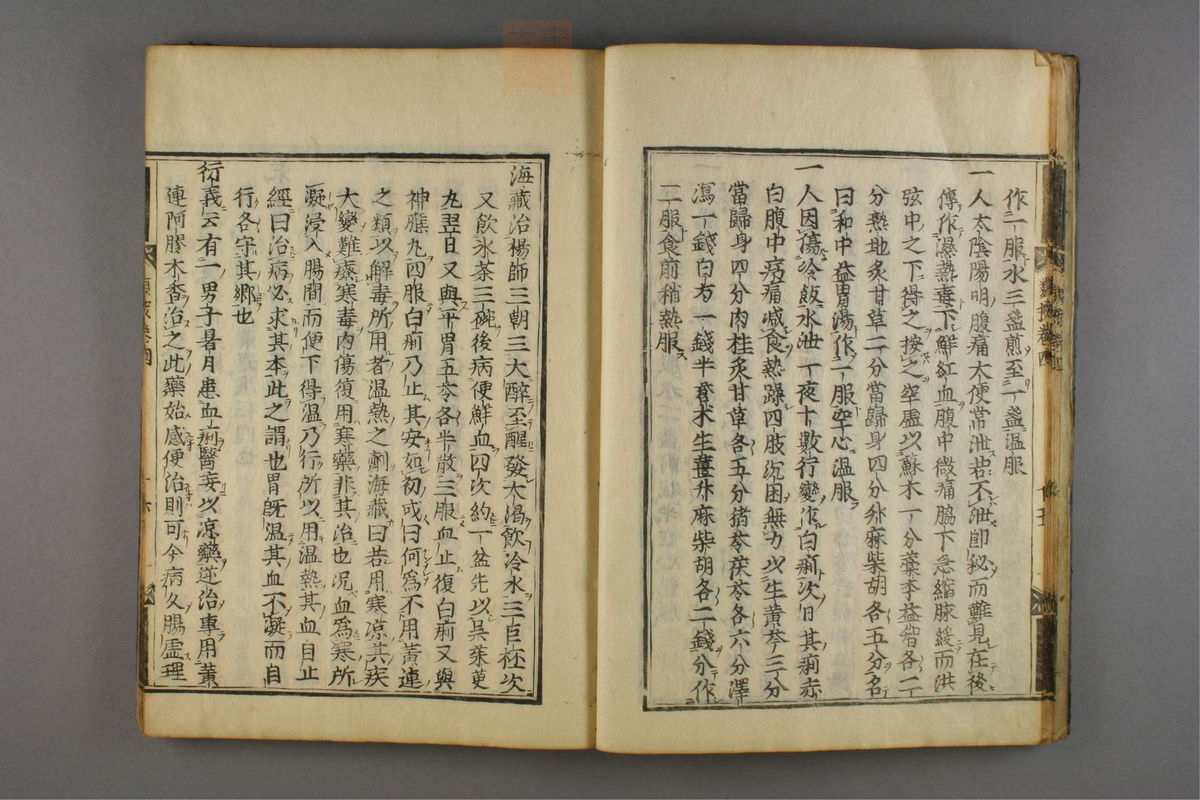 作一服水三盞煎至一盞温服
一人太陰陽明腹痛大便常泄若不泄卽秘而難見在後
傳作濕熱毒下鮮紅血腹中微痛脇下急縮脉緩而洪
弦中之下得之按之空虚以蘇木一分藁本益智各二
分熱地炙甘草二分當歸身四分升麻柴胡各五分名
曰和中益胃湯作二服空心温服
一人因傷冷飯水泄一夜十數行變作白痢次日其痢赤
白腹中㽲痛减食熱躁四肢沉困無力以生黄芩三分
當歸身四分肉桂炙甘草各五分猪苓茯苓各六分澤
瀉一錢白芍一錢半蒼朮生薑升麻柴胡各二錢分作
二服食前稍熱服
海藏治楊師三朝三大醉至醒發大渇飲冷水三巨杯次
又飲氷茶三碗後病便鮮血四次約一盆先以吴茱萸
丸翌日又與平胃五苓各半散三服血止復白痢又與
神應丸四服白痢乃止其安如初或曰何爲不用黄連
之類以解毒所用者温熱之劑海藏曰若用寒凉其疾
大變難療寒毒内傷復用寒藥非其治也况血爲寒所
凝浸入腸間而便下得温乃行所以用温熱其血自止
經曰治病必求其本此之謂也胃旣温其血不凝而自
行各守其鄉也
衍義云有一男子暑月患血痢醫妄以凉藥逆治專用黄
連阿膠木香治之此藥始感便治則可今病久腸虚理